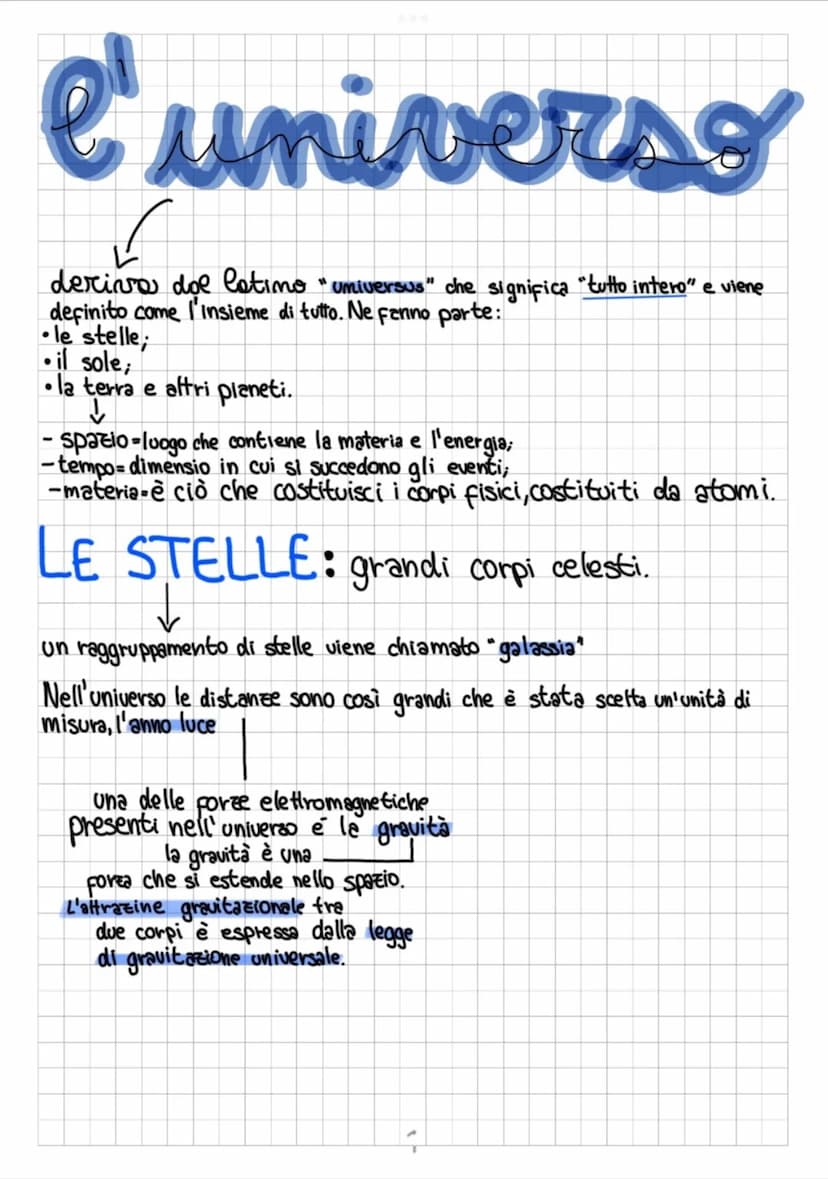 l'universo
deriva dal latino "universus" che significa "tutto intero" e viene
definito come l'insieme di tutto. Ne fanno parte:
• le stelle;
• il sole;
• la terra e altri pianeti.
- spazio=luogo che contiene la materia e l'energia;
- tempo= dimensio in cui si succedono gli eventi;
- materia=è ciò che costituisci i corpi fisici, costituiti da atomi.
LE STELLE: grandi corpi celesti.
un raggruppamento di stelle viene chiamato "galassia"
Nell'universo le distanze sono così grandi che è stata scelta un'unità di
misura, l'anno luce
una delle forze elettromagnetiche
presenti nell'universo é la gravità
la gravità è una
forza che si estende nello spazio.
L'attrazine gravitazionale tra
due corpi è espressa dalla legge
di gravitazione universale.